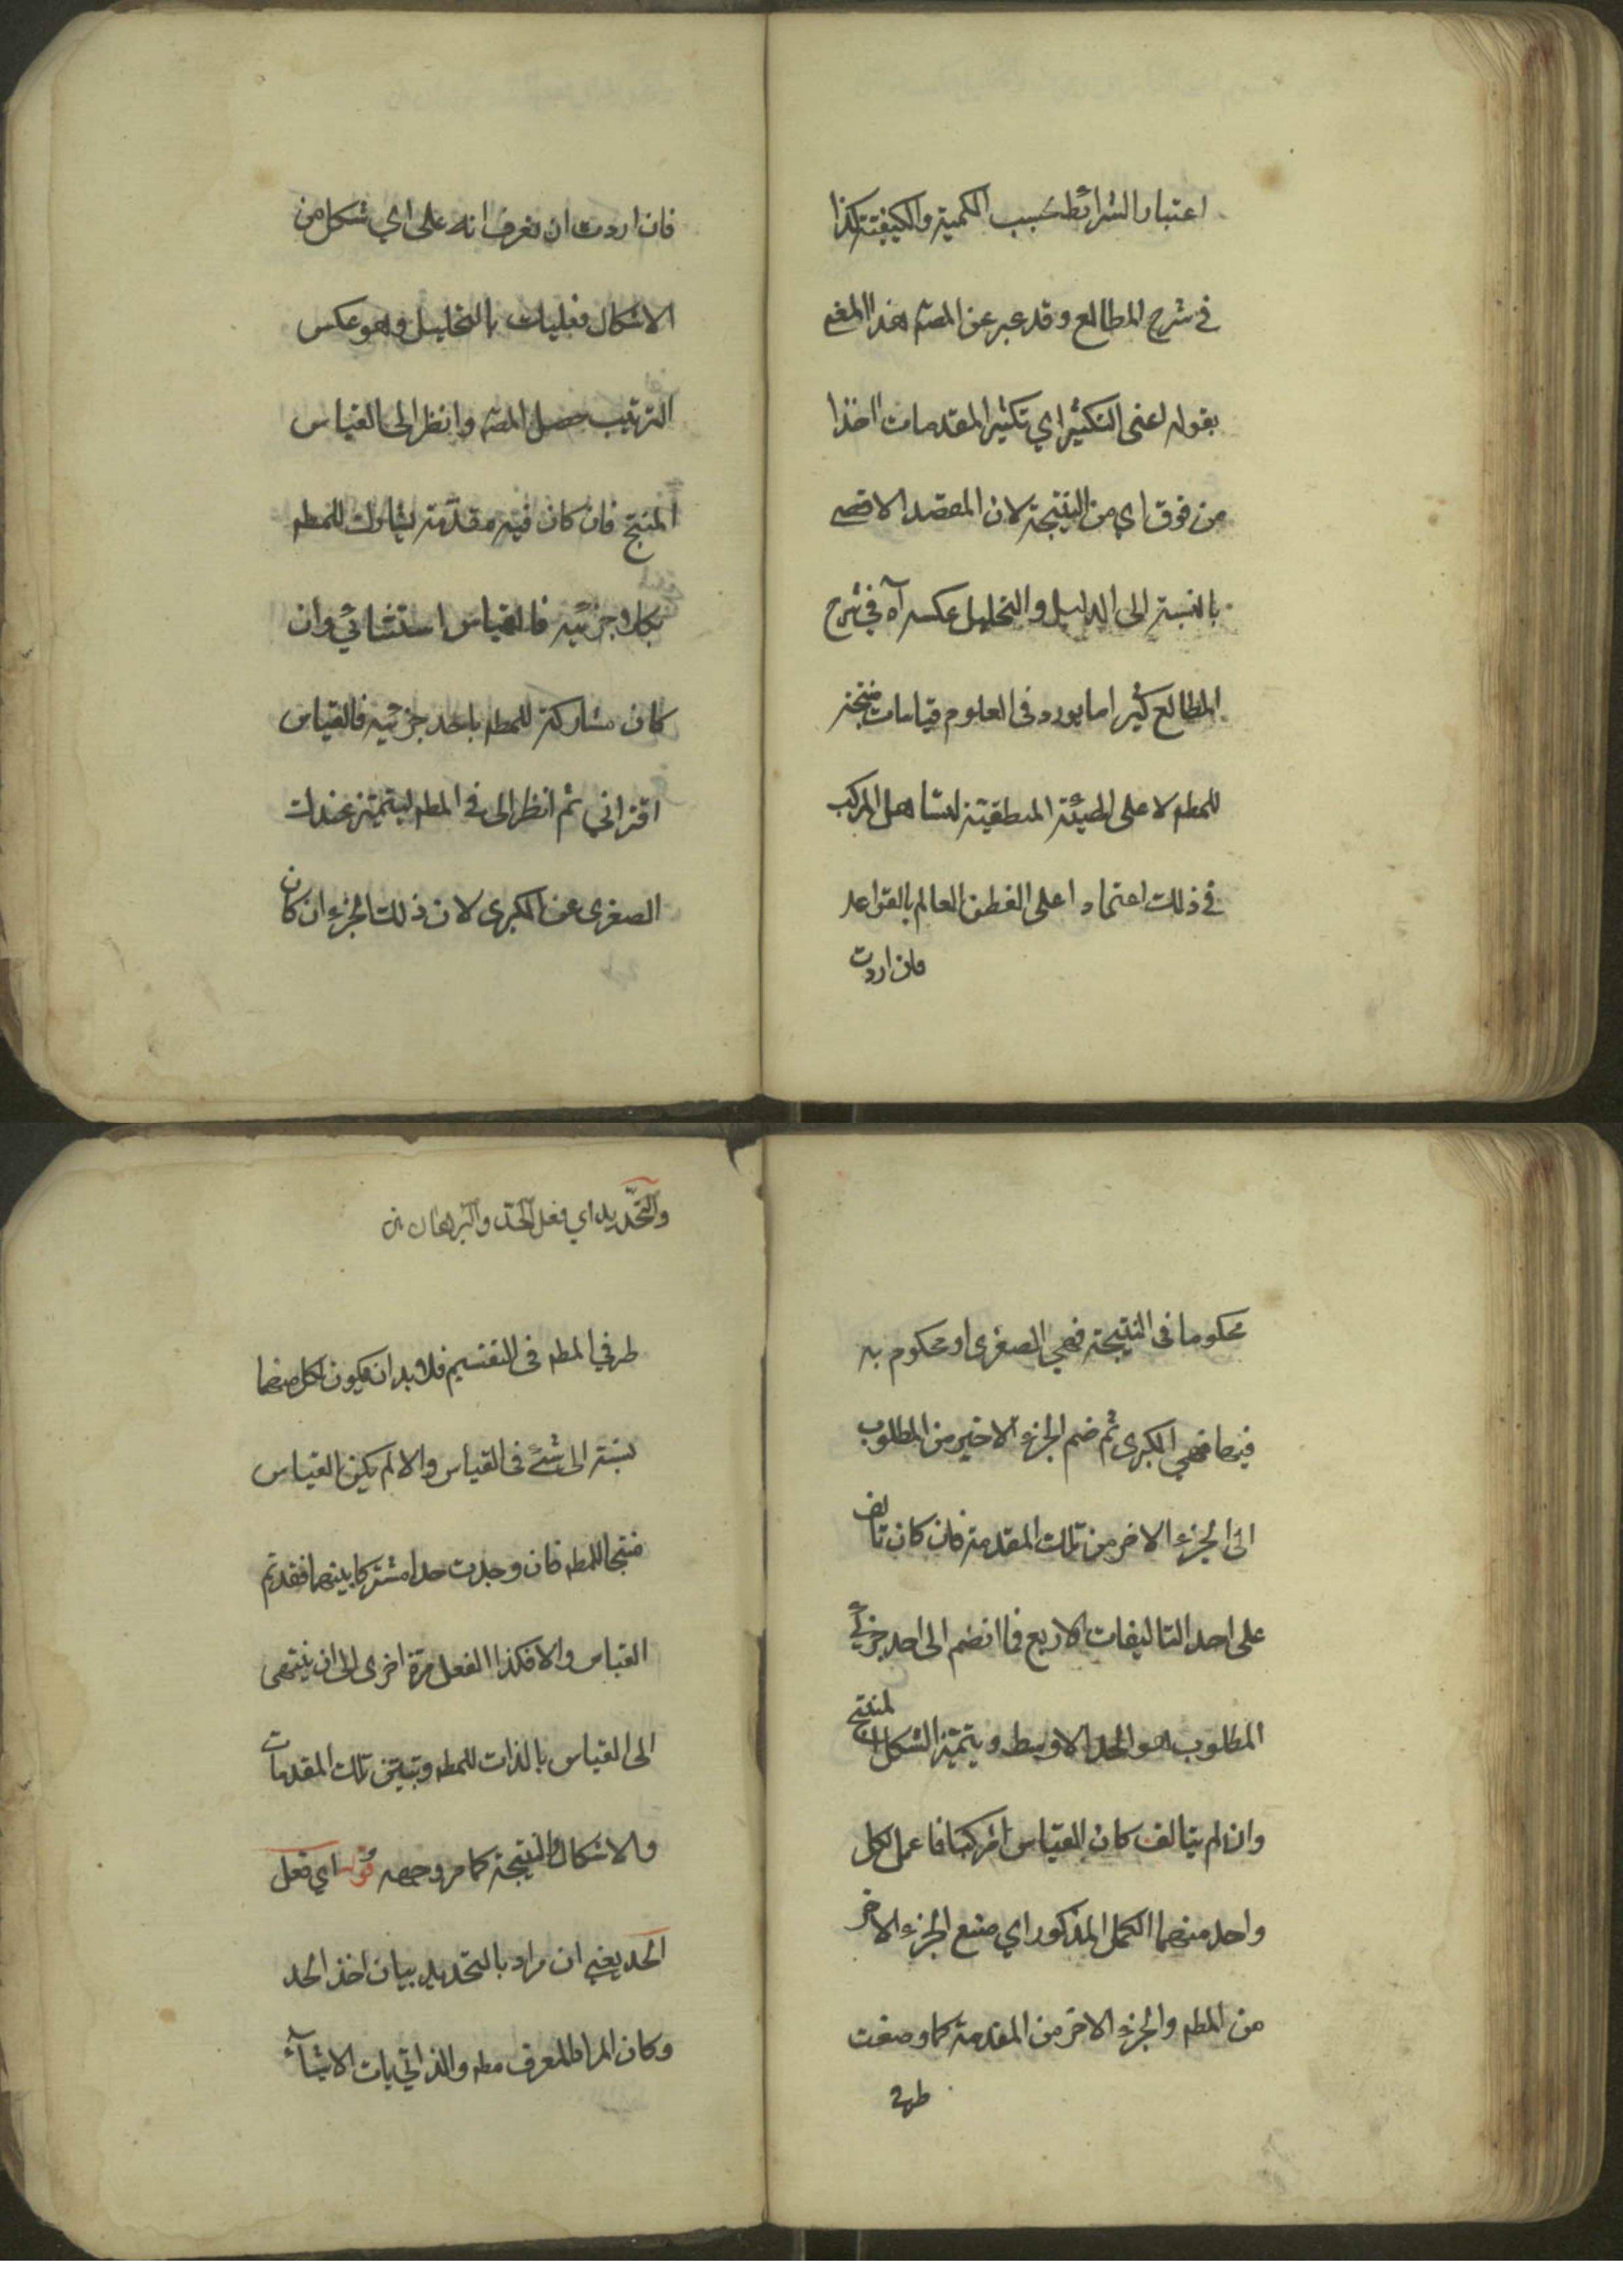 اعتبار الشرائط بحسب الكمية والكيفية كذا
في شرح المطالع وقد عبر عن المصنف هذا المعنى
بقوله اعنى التكثير اي تكثير المقدمات اخذا
من فوق اي من النتيجة لان المقصد الاقصى
بالنسبة الى الدليل والتحليل عكسه آه في شرح
المطالع كثيرا ما يورد فى العلوم قياسات منتجة
للمطم لا على الهيئة المنطقية لتساهل المركب
في ذلك اعتمادا على الفطن العالم بالقواعد
فان اردت
فان اردت ان تعرف انه على اي شكل من
الاشكال فعليك بالتحليل وهو عكس
الترتيب حصل المصه وانظر الى القياس
المنتج فان كان فيه مقدمة يشارك للمطم
بكلا جزئيه فالقياس استثنائي وان
كان مشاركة للمطم باحد جزئيه فالقياس
اقتراني ثم انظر الى في المطم ليتميز عندك
الصغرى عن الكبرى لان ذلك الجزء ان كان
محكوما فى النتيجة فهي الصغرى او محكوم به
فيها فهي الكبرى ثم ضم الجزء الاخير من المطلوب
الى الجزء الاخر من تلك المقدمة فان كان تالف
على احد التاليفات الاربع فما انضم الى احد جزئي
المطلوب هو الحد الاوسط ويتميز الشكل المنتج
وان لم يتالف كان القياس مركبا فاعمل بكل
واحد منهما العمل المذكور اي صنع الجزء الاخر
من المطم والجزء الاخر من المقدمة كما وصفت
طرفي
والتحديد اي فعل الحد والبرهان
طرفي المطم فى التقسيم فلا بد ان يكون لكل منهما
نسبة الى شئ فى القياس والا لم يكن القياس
منتجا للمطم فان وجدت حدا مشتركا بينهما فقد تم
القياس والا فكذا الفعل مرة اخرى الى ان ينتهى
الى القياس بالذات للمطم وتبين تلك المقدمات
والاشكال والنتيجة كما مر وجهه قوله اي فعل
الحد يعني ان مراد بالتحديد بيان اخذ الحد
وكان المراد المعرف مطم والذاتيات الاشياء